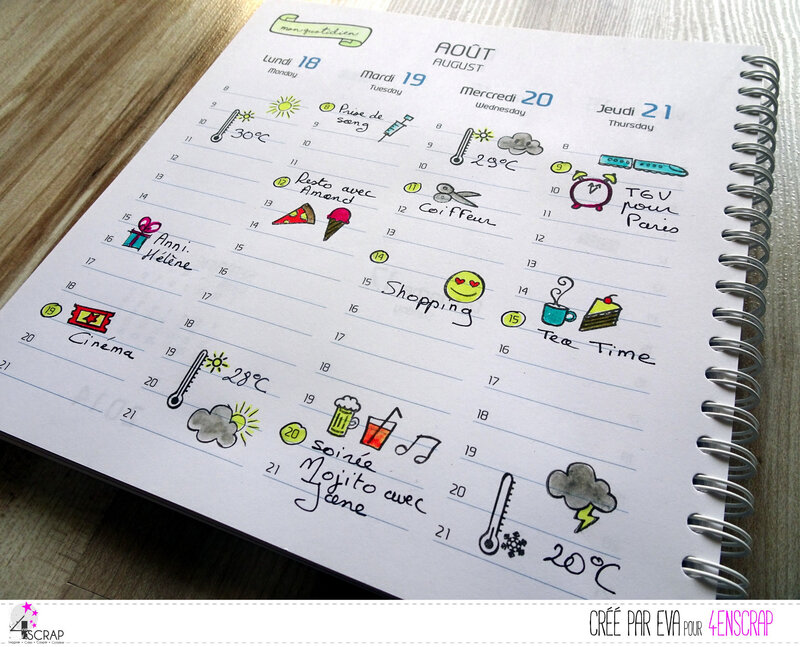 mon quotidien
AOÛT
AUGUST
Lundi 18
Monday
8
9
10
30°C
11
12
13
14
15
16
Anni.
Hélène
17
18
19
Cinéma
20
21
Mardi 19
Tuesday
8
Prise de
sang
9
10
11
12
Resto avec
Amand
13
14
15
16
17
18
19
28°C
20
21
Mercredi 20
Wednesday
8
9
29°C
10
11
12
Coiffeur
13
14
15
Shopping
16
17
18
19
20
soirée
Mojito avec
Jane
21
Jeudi 21
Thursday
8
9
10
TGV
pour
Paris
11
12
13
14
15
Tea Time
16
17
18
19
20
21
20°C
4enSCRAP
CRÉÉ PAR EVA POUR 4ENSCRAP